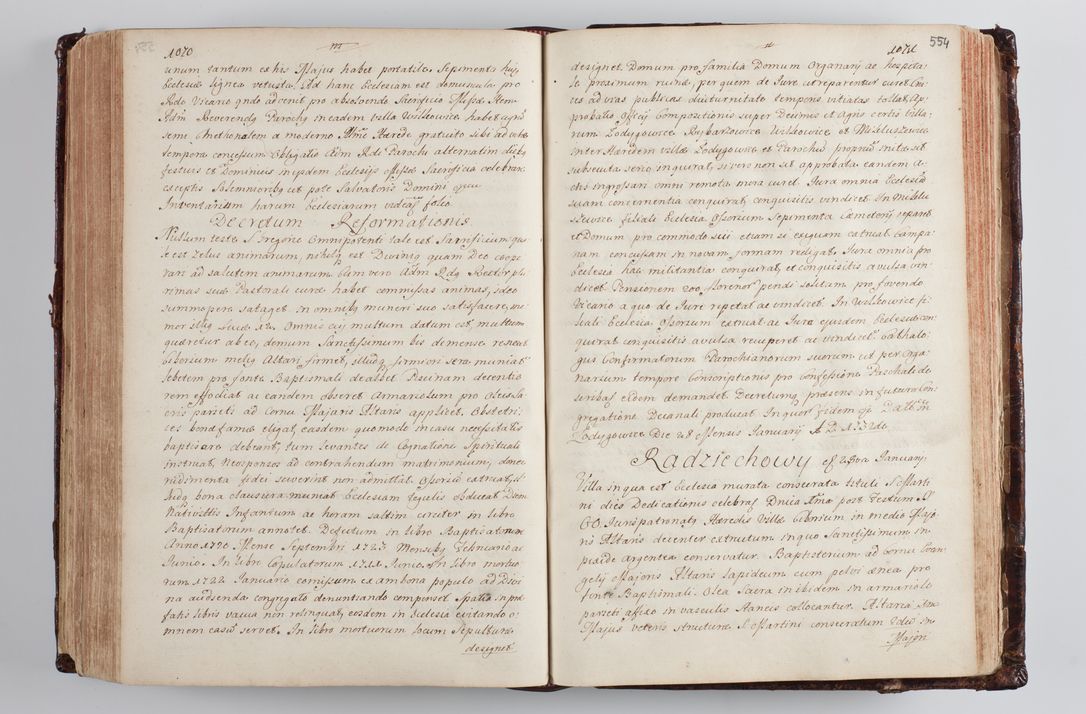 1070
unum tantum ex his Majus habet portatile. Sepimenta huj
Ecclesiæ lignea vetusta. Ad hanc Ecclesiam est domuncula pro
Rdo Vicario qndo advenit pro absolvendo Sacrificio Missæ Item
Adm Reverendg Parochg in eadem villa Wilkowice habet agru
semi Cmethonalem a moderno Illmo Hærede gratuito sibi ad
tempora concessum. Obligatio Adm Rdi Parochi alternatim diebg
festivis et Dominicis in ejsdem Ecclesijs Missæ Sacrificia celebrare
exceptis Solemnioribg ut pote Salvatoris Domini
Inventarium harum Ecclesiarum
Decretum Reformationis
Nullum teste S Gregorio Omnipotenti tale est Sacrificium qua
le est zelus animarum, nihilg est Divinig quam Deo coope
rari ad salutem animarum. Cum vero Adm Rdg Rector plu
rimas suæ Pastorali curæ habet commissas animas, ideo
summopere sataget in omnibg muneri suo satisfacere, me
mor illig Lucæ 12. Omnis cuj multum datum est, multum
quæretur ab eo, demum Sanctissimum bis de mense renovet
Ciborium melig Altari firmet, illudg firmiori sera muniat
lebetem pro fonte Baptismali dealbet Piscinam decentio
rem effodiat ac eandem obseret Armariolum pro Oleis Sa
cris parieti ad Cornu Majoris Altaris applicet. Obstetri
ces bonæ famæ eligat, easdem quomodo in casu necessitatis
baptisare debeant, tum levantes de Cognatione Spirituali
instruat. Neosponsos ad contrahendum matrimonium, donec
rudimenta fidei sciverint non admittat. Ossoria extruat, il
ludg bona clausura muniat Ecclesiam tegulis obducat Diem
Nativittis Infantium ac horam saltim circiter in libro
Baptisatorum annotet. Defectum in libro Baptisatorum
Anno 1720 Mense Septembri 1723 Mensibg Februario ac
Junio. In libro Copulatorum 1721 Junio. In libro mortuo
rum 1722 Januario comissum ex ambona populo ad Divi
na audienda congregato denuntiando compenset Spatia in præ
fatis libris vacua non relinquat, eosdem in Ecclesia evitando o
mnem casu servet. In libro mortuorum locum Sepulturæ
designet

1071
554
designet. Domum pro familia Domum Organarij ac hospita
le proximum ruinæ, per quem de Jure ut reparentur curet
ces ad vias publicas diuturnitate temporis vitiatas tollat, Ap
probatio Officij Compositionis super Decimis et Agris certis Villa
rum Lodygowice Rybarzowice Wilkowice et Mikluszewice
inter Hæredem villæ Lodygowice et Parochum propriu initæ sit
subsecuta serio inquirat, si vero non sit approbata eandem a
ctis ingrossari omni remota mora curet. Jura omnia Ecclesiæ
suam concernentia conquirat, conquisitis vindicet. In Miklu
szewice filiali Ecclesia Ossorium Sepimenta Cæmeterij reparet
et Domum pro commodo sui etiam si exiguam extruat. Campa
nam concussam in novam formam redigat, Jura omnia pro
Ecclesia hac militantia conquirat, et conquisitis avulsa vin
dicet. Pensionem 200 florenor pendi solitam pro fovendo
Vicario a quo de Jure repetat ac vindicet. In Wilkowice fi
liali Ecclesia Ossorium extruat ac Jura ejusdem Ecclesiæ con
quirat conquisitis avulsa recuperet ac vindicet.
gus Confirmatorum Parochianorum suorum ut per Orga
narium tempore Conscriptionis pro Confessione Paschali de
scribat eidem demandet. Decretumq præsens in futura Con
gregatione Decanali producat In quor fidem Datt in
Lodygowice Die 28 Mensis Januarij A D 1728.
Radziechowy 29na Januarij
Villa in qua est Ecclesia murata consecrata tituli S Marti
ni dies Dedicationis celebrat Dnica 1ma post Festum S
OO. Juris patronatg Hæredis Villæ Ciborium in medio Majo
ris Altaris decenter extructum in quo Sanctissimum in
pixide argentea conservatur. Baptisterium ad cornu Evan
gelij Majoris Altaris lapideum cum pelvi ænea pro
fonte Baptismali. Olea Sacra in ibidem in armariolo
parieti affixo in vasculis staneis collocantur. Altaria
Majus veteris structuræ S Martini consecratum
Majori